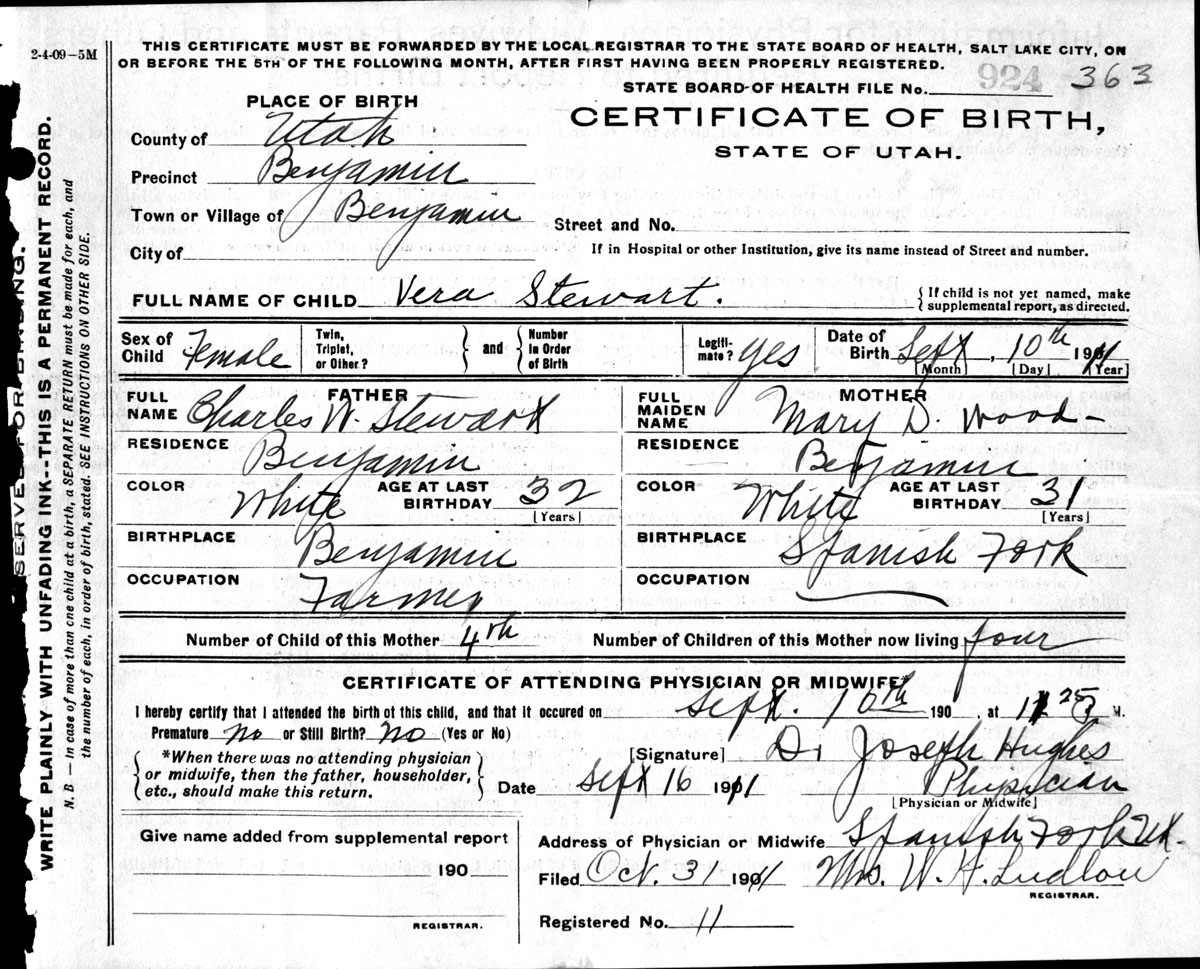 2-4-09-5M
THIS CERTIFICATE MUST BE FORWARDED BY THE LOCAL REGISTRAR TO THE STATE BOARD OF HEALTH, SALT LAKE CITY, ON
OR BEFORE THE 5TH OF THE FOLLOWING MONTH, AFTER FIRST HAVING BEEN PROPERLY REGISTERED.
924 363
STATE BOARD OF HEALTH FILE No.
PLACE OF BIRTH
CERTIFICATE OF BIRTH,
STATE OF UTAH.
County of Utah
Precinct Benjamin
Town or Village of Benjamin
Street and No.
City of
If in Hospital or other Institution, give its name instead of Street and number.
FULL NAME OF CHILD Vera Stewart.
{ If child is not yet named, make
supplemental report, as directed.
Sex of Child Female
Twin, Triplet, or Other?
} and {
Number in Order of Birth
Legiti-mate? yes
Date of Birth Sept. 10th 1911
[Month] [Day] [Year]
FATHER
FULL NAME Charles W. Stewart
MOTHER
FULL MAIDEN NAME Mary D. Wood
RESIDENCE Benjamin
RESIDENCE Benjamin
COLOR White AGE AT LAST BIRTHDAY 32
[Years]
COLOR White AGE AT LAST BIRTHDAY 31
[Years]
BIRTHPLACE Benjamin
BIRTHPLACE Spanish Fork
OCCUPATION Farmer
OCCUPATION
Number of Child of this Mother 4th Number of Children of this Mother now living four
CERTIFICATE OF ATTENDING PHYSICIAN OR MIDWIFE*
I hereby certify that I attended the birth of this child, and that it occured on Sept. 10th 190 at M.
Premature No or Still Birth? No (Yes or No)
[Signature] Dr Joseph Hughes
{ *When there was no attending physician
or midwife, then the father, householder,
etc., should make this return. }
Date Sept 16 1911 Physician
[Physician or Midwife]
Give name added from supplemental report
190
REGISTRAR.
Address of Physician or Midwife Spanish Fork Ut.
Filed Oct. 31 1911 Mrs. W. H. Ludlow
REGISTRAR.
Registered No. 11
SERVED FOR BINDING.
WRITE PLAINLY WITH UNFADING INK--THIS IS A PERMANENT RECORD.
N. B — In case of more than one child at a birth, a SEPARATE RETURN must be made for each, and
the number of each, in order of birth, stated. SEE INSTRUCTIONS ON OTHER SIDE.